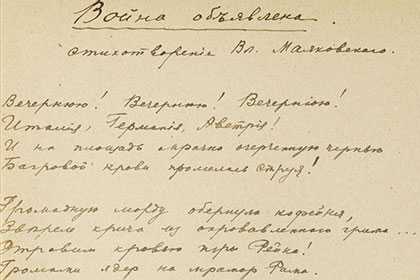 Война объявлена.
стихотвореніе Вл. Маяковскаго.
Вечернюю! Вечернюю! Вечернюю!
Италія, Германія, Австрія!
И на площадь мрачно очерченную чернью
Багровой крови пролилась струя!
Громадную морду обернула кофейня,
Звѣрем крича из окровавленнаго грима...
Отравим кровью игры Рейна!
Громами ядер на мрамор Рима.